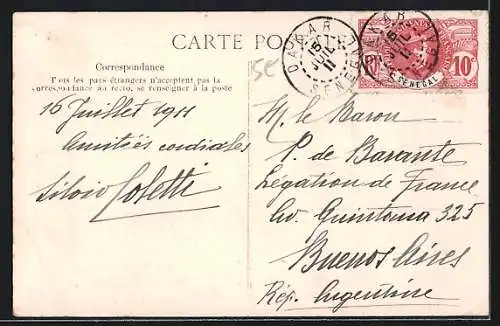 CARTE POSTALE
Correspondance
Tous les pays étrangers n'acceptent pas la
correspondance au recto, se renseigner à la poste
16 Juillet 1911
Amitiés cordiales
Silvio Coletti
DAKAR
15
JUIL
11
SENEGAL
DAKAR
15
SENEGAL
10c
5E
M. le Baron
P. de Barante
Légation de France
Av. Quintana 325
Buenos Aires
Rép. Argentine